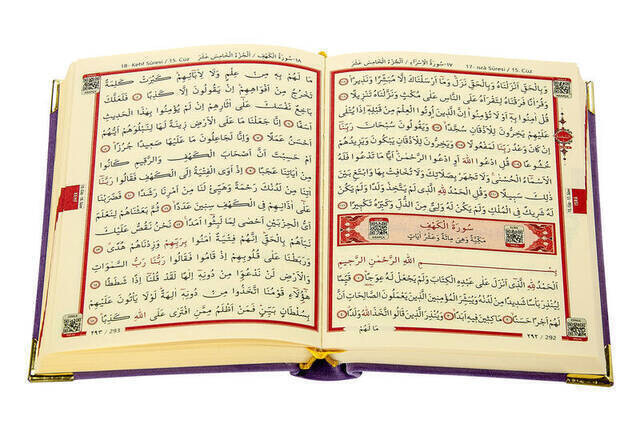 17- İsrâ Sûresi / 15. Cüz ١٧-سُورَةُ الْإِسْرَاءِ / اَلْجُزْءُ الْخَامِسُ عَشَرَ
وَبِالْحَقِّ اَنْزَلْنَاهُ وَبِالْحَقِّ نَزَلَ وَمَا اَرْسَلْنَاكَ اِلَّا مُبَشِّرًا وَنَذِيرًا
وَقُرْاٰنًا فَرَقْنَاهُ لِتَقْرَاَهُ عَلَى النَّاسِ عَلٰى مُكْثٍ وَنَزَّلْنَاهُ تَنْزِيلًا
قُلْ اٰمِنُوا بِهِ اَوْ لَا تُؤْمِنُوا اِنَّ الَّذِينَ اُوتُوا الْعِلْمَ مِنْ قَبْلِهِ اِذَا يُتْلٰى
عَلَيْهِمْ يَخِرُّونَ لِلْاَذْقَانِ سُجَّدًا وَيَقُولُونَ سُبْحَانَ رَبِّنَا
اِنْ كَانَ وَعْدُ رَبِّنَا لَمَفْعُولًا وَيَخِرُّونَ لِلْاَذْقَانِ يَبْكُونَ وَيَزِيدُهُمْ
خُشُوعًا قُلِ ادْعُوا اللّٰهَ اَوِ ادْعُوا الرَّحْمٰنَ اَيًّا مَا تَدْعُوا فَلَهُ
الْاَسْمَاءُ الْحُسْنٰى وَلَا تَجْهَرْ بِصَلَاتِكَ وَلَا تُخَافِتْ بِهَا وَابْتَغِ بَيْنَ
ذٰلِكَ سَبِيلًا وَقُلِ الْحَمْدُ لِلّٰهِ الَّذِي لَمْ يَتَّخِذْ وَلَدًا وَلَمْ يَكُنْ
لَهُ شَرِيكٌ فِي الْمُلْكِ وَلَمْ يَكُنْ لَهُ وَلِيٌّ مِنَ الذُّلِّ وَكَبِّرْهُ تَكْبِيرًا
سُورَةُ الْكَهْفِ
مَكِّيَّةٌ وَهِيَ مِائَةٌ وَعَشْرُ اٰيَاتٍ
بِسْمِ اللّٰهِ الرَّحْمٰنِ الرَّحِيمِ
اَلْحَمْدُ لِلّٰهِ الَّذِي اَنْزَلَ عَلٰى عَبْدِهِ الْكِتَابَ وَلَمْ يَجْعَلْ لَهُ عِوَجًا قَيِّمًا
لِيُنْذِرَ بَاْسًا شَدِيدًا مِنْ لَدُنْهُ وَيُبَشِّرَ الْمُؤْمِنِينَ الَّذِينَ يَعْمَلُونَ الصَّالِحَاتِ اَنَّ
لَهُمْ اَجْرًا حَسَنًا مَاكِثِينَ فِيهِ اَبَدًا وَيُنْذِرَ الَّذِينَ قَالُوا اتَّخَذَ اللّٰهُ وَلَدًا
مَا لَهُمْ
٢٩٢ / 292
18- Kehf Sûresi / 15. Cüz ١٨-سُورَةُ الْكَهْفِ / اَلْجُزْءُ الْخَامِسُ عَشَرَ
مَا لَهُمْ بِهِ مِنْ عِلْمٍ وَلَا لِاٰبَائِهِمْ كَبُرَتْ كَلِمَةً
تَخْرُجُ مِنْ اَفْوَاهِهِمْ اِنْ يَقُولُونَ اِلَّا كَذِبًا فَلَعَلَّكَ
بَاخِعٌ نَفْسَكَ عَلٰى اٰثَارِهِمْ اِنْ لَمْ يُؤْمِنُوا بِهٰذَا الْحَدِيثِ
اَسَفًا اِنَّا جَعَلْنَا مَا عَلَى الْاَرْضِ زِينَةً لَهَا لِنَبْلُوَهُمْ اَيُّهُمْ
اَحْسَنُ عَمَلًا وَاِنَّا لَجَاعِلُونَ مَا عَلَيْهَا صَعِيدًا جُرُزًا
اَمْ حَسِبْتَ اَنَّ اَصْحَابَ الْكَهْفِ وَالرَّقِيمِ كَانُوا
مِنْ اٰيَاتِنَا عَجَبًا اِذْ اَوَى الْفِتْيَةُ اِلَى الْكَهْفِ فَقَالُوا رَبَّنَا
اٰتِنَا مِنْ لَدُنْكَ رَحْمَةً وَهَيِّئْ لَنَا مِنْ اَمْرِنَا رَشَدًا فَضَرَبْنَا
عَلٰى اٰذَانِهِمْ فِي الْكَهْفِ سِنِينَ عَدَدًا ثُمَّ بَعَثْنَاهُمْ لِنَعْلَمَ
اَيُّ الْحِزْبَيْنِ اَحْصٰى لِمَا لَبِثُوا اَمَدًا نَحْنُ نَقُصُّ عَلَيْكَ
نَبَاَهُمْ بِالْحَقِّ اِنَّهُمْ فِتْيَةٌ اٰمَنُوا بِرَبِّهِمْ وَزِدْنَاهُمْ هُدًى
وَرَبَطْنَا عَلٰى قُلُوبِهِمْ اِذْ قَامُوا فَقَالُوا رَبُّنَا رَبُّ السَّمٰوَاتِ
وَالْاَرْضِ لَنْ نَدْعُوَا مِنْ دُونِهِ اِلٰهًا لَقَدْ قُلْنَا اِذًا شَطَطًا
هٰؤُلَاءِ قَوْمُنَا اتَّخَذُوا مِنْ دُونِهِ اٰلِهَةً لَوْلَا يَاْتُونَ عَلَيْهِمْ
بِسُلْطَانٍ بَيِّنٍ فَمَنْ اَظْلَمُ مِمَّنِ افْتَرٰى عَلَى اللّٰهِ كَذِبًا
٢٩٣ / 293